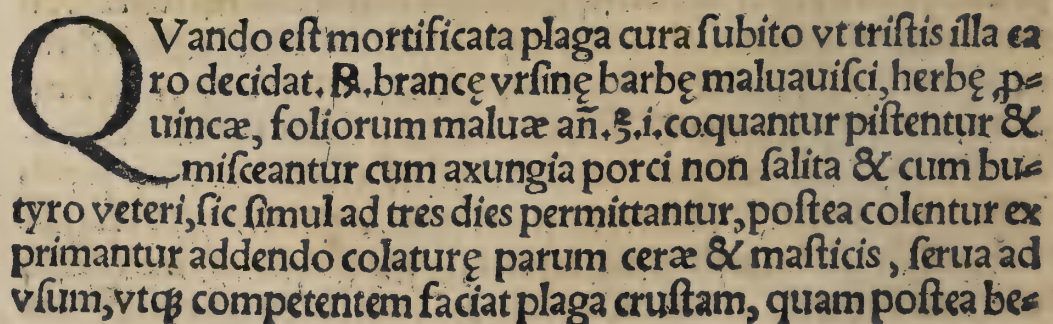 QVando eſt mortificata plaga cura ſubito vt triſtis illa ca
ro decidat. ℞. brancę vrſinę barbę maluauiſci, herbę ꝓ⸗
uincæ, foliorum maluæ an̄. ℥. i. coquantur piſtentur &
miſceantur cum axungia porci non ſalita & cum bu⸗
tyro veteri, ſic ſimul ad tres dies permittantur, poſtea colentur ex
primantur addendo colaturę parum ceræ & maſticis, ſerua ad
vſum, vtqꝫ competentem faciat plaga cruſtam, quam poſtea be⸗